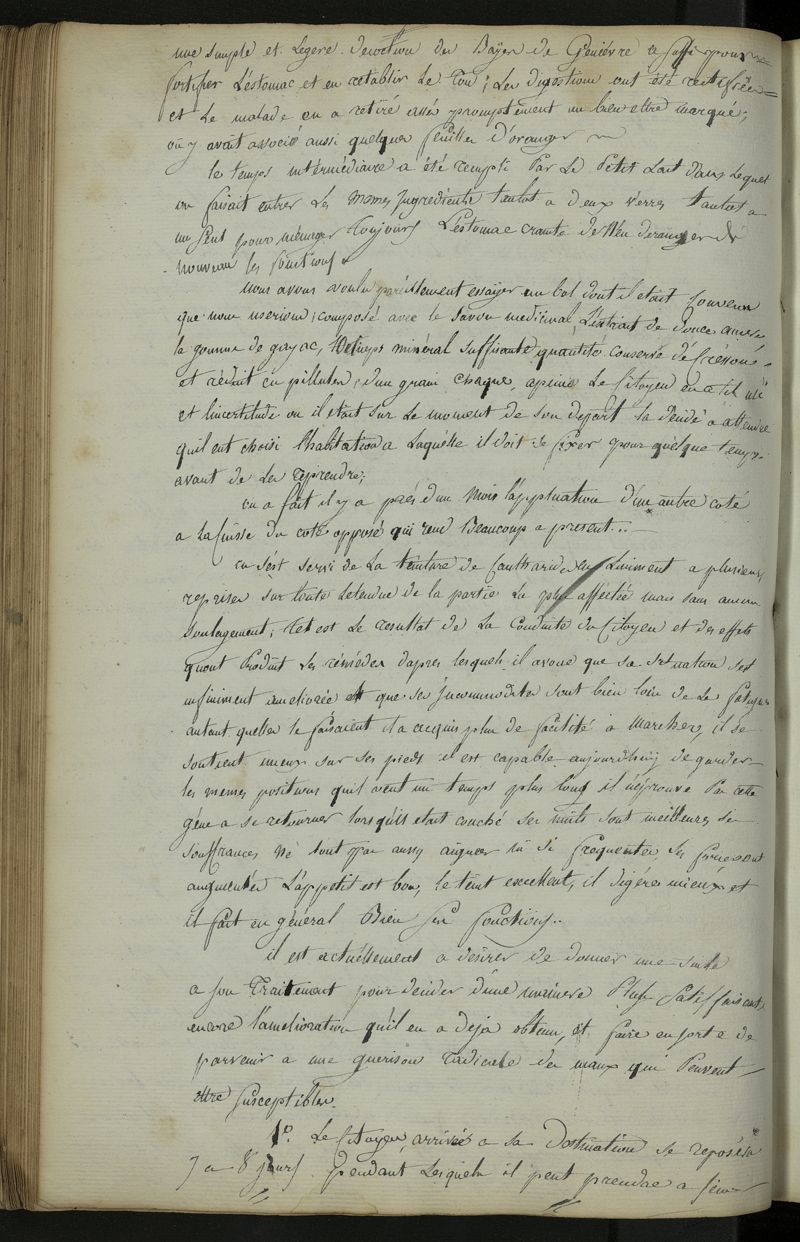 une simple et Legere decoction des Bayes de Genièvre a suffi pour
fortifier L'estomac et en retablir Le Ton; Les digestions ont été rectifiées
et Le malade en a retiré assés promptement un bien etre marqué;
on y avait associé aussi quelques feuilles d'oranger
le temps intérmédiaire a été rempli Par Le Petit Lait dans Lequel
on faisait entrer Les memes Jngredients tantot a deux verres tantot a
un seul pour ménager Toujours L'estomac crainte de deranger de
nouveau ses fonctions
nous avons voulu paréillement essayer un bol dont il était convenu
que nous userions; composé avec le savon medicinal, L'extrait de douce amere
la gomme de gayac, l'Ethiops minéral suffisante quantité conserve de Cresson
et réduit en pillules; d'un grain chaque, apeine Le Citoyen en a til usé
et l'incertitude ou il était sur Le moment de son depart la décidé a attendre
quil eut choisi l'habitation a Laquelle il doit se fixer pour quelque temps
avant de Les reprendre;
on a fait il y a près d'un Mois l'application d'un autre coté
a La Cuisse du coté opposé qui rend Beaucoup a present...
on s'est servi de La teinture de Cantharides en Liniment a plusieurs
reprises sur toute Letendue de la partie La plus afféctée mais sans aucun
soulagement; tel est Le resultat de La Conduite du Citoyen et des effets
quont Produit Les rémédes dapres lesquels il avoue que sa situation s'est
infiniment améliorée et que ses Jncommodités sont bien loin de Le fatiguer
autant quelles le faisaient il a acquis plus de facilité a Marcher, il se
soutient mieux sur ses pieds il est capable aujourdhuy de garder
les memes positions quil avait un temps plus long il n'éprouve Pas cette
géne a se retourner lorsqu'il etait couché ses nuits sont meilleures ses
souffrances Ne sont pas aussy aigues ni si frequentes ses forces ont
augmentées L'appétit est bon, le teint excellent, il digére mieux et
il fait en général Bien ses fonctions..
il est actuéllement a desirer de donner une suite
a son Traitement pour decider d'une maniere Plus satisfaisante
encore l'amelioration qu'il en a deja obtenu, et faire en sorte de
parvenir a une guerison radicale des maux qui Peuvent
etre susceptibles.
1º. Le Citoyen, arrivée a sa Destination se reposéra
7 a 8 jours pendant Lesquels il peut prendre a jeun